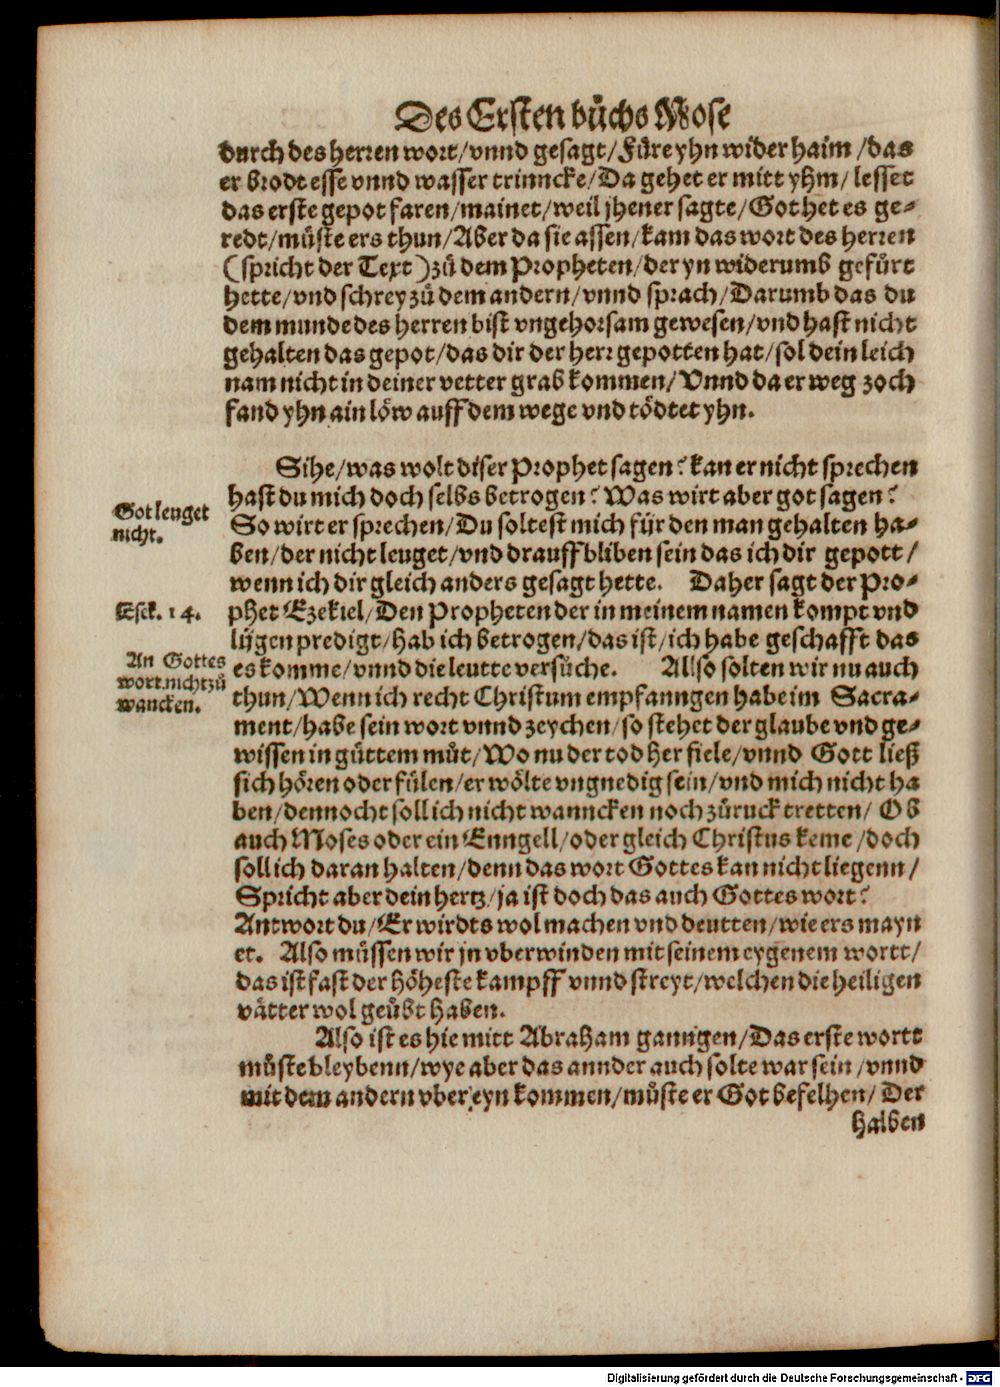 Des Ersten bůchs Mose
durch des herren wort/vnnd gesagt/Füre yhn wider haim/das
er brodt esse vnnd wasser trinncke/Da gehet er mitt yhm/lesset
das erste gepot faren/mainet/weil jhener sagte/Got het es ge-
redt/müste ers thun/Aber da sie assen/kam das wort des herren
(spricht der Text) zů dem Propheten/der yn widerumb gefürt
hette/vnd schrey zů dem andern/vnnd sprach/Darumb das du
dem munde des herren bist vngehorsam gewesen/vnd hast nicht
gehalten das gepot/das dir der herr gepotten hat/sol dein leich
nam nicht in deiner vetter grab kommen/Vnnd da er weg zoch
fand yhn ain löw auff dem wege vnd tödtet yhn.
Sihe/was wolt diser Prophet sagen? kan er nicht sprechen
hast du mich doch selbs betrogen? Was wirt aber got sagen?
Got leuget
nicht.
So wirt er sprechen/Du soltest mich für den man gehalten ha-
ben/der nicht leuget/vnd drauff bliben sein das ich dir gepott/
wenn ich dir gleich anders gesagt hette. Daher sagt der Pro-
Esek. 14.
phet Ezekiel/Den Propheten der in meinem namen kompt vnd
lügen predigt/hab ich betrogen/das ist/ich habe geschafft das
An Gottes
wort nicht zů
wancken.
es komme/vnnd die leutte versůche. Also solten wir nu auch
thun/Wenn ich recht Christum empfanngen habe im Sacra-
ment/habe sein wort vnnd zeychen/so stehet der glaube vnd ge-
wissen in gůttem můt/Wo nu der tod her fiele/vnnd Gott ließ
sich hören oder fülen/er wölte vngnedig sein/vnd mich nicht ha
ben/dennocht soll ich nicht wanncken noch zůruck tretten/Ob
auch Moses oder ein Enngell/oder gleich Christus keme/doch
soll ich daran halten/denn das wort Gottes kan nicht liegenn/
Spricht aber dein hertz/ja ist doch das auch Gottes wort?
Antwort du/Er wirdts wol machen vnd deutten/wie ers mayn
et. Also müssen wir jn vberwinden mit seinem eygenem wortt/
das ist fast der höheste kampff vnnd streyt/welchen die heiligen
vätter wol geübt haben.
Also ist es hie mitt Abraham ganngen/Das erste wortt
můste bleybenn/wye aber das annder auch solte war sein/vnnd
mit dem andern vber eyn kommen/můste er Got befelhen/Der
halben
Digitalisierung gefördert durch die Deutsche Forschungsgemeinschaft - DFG